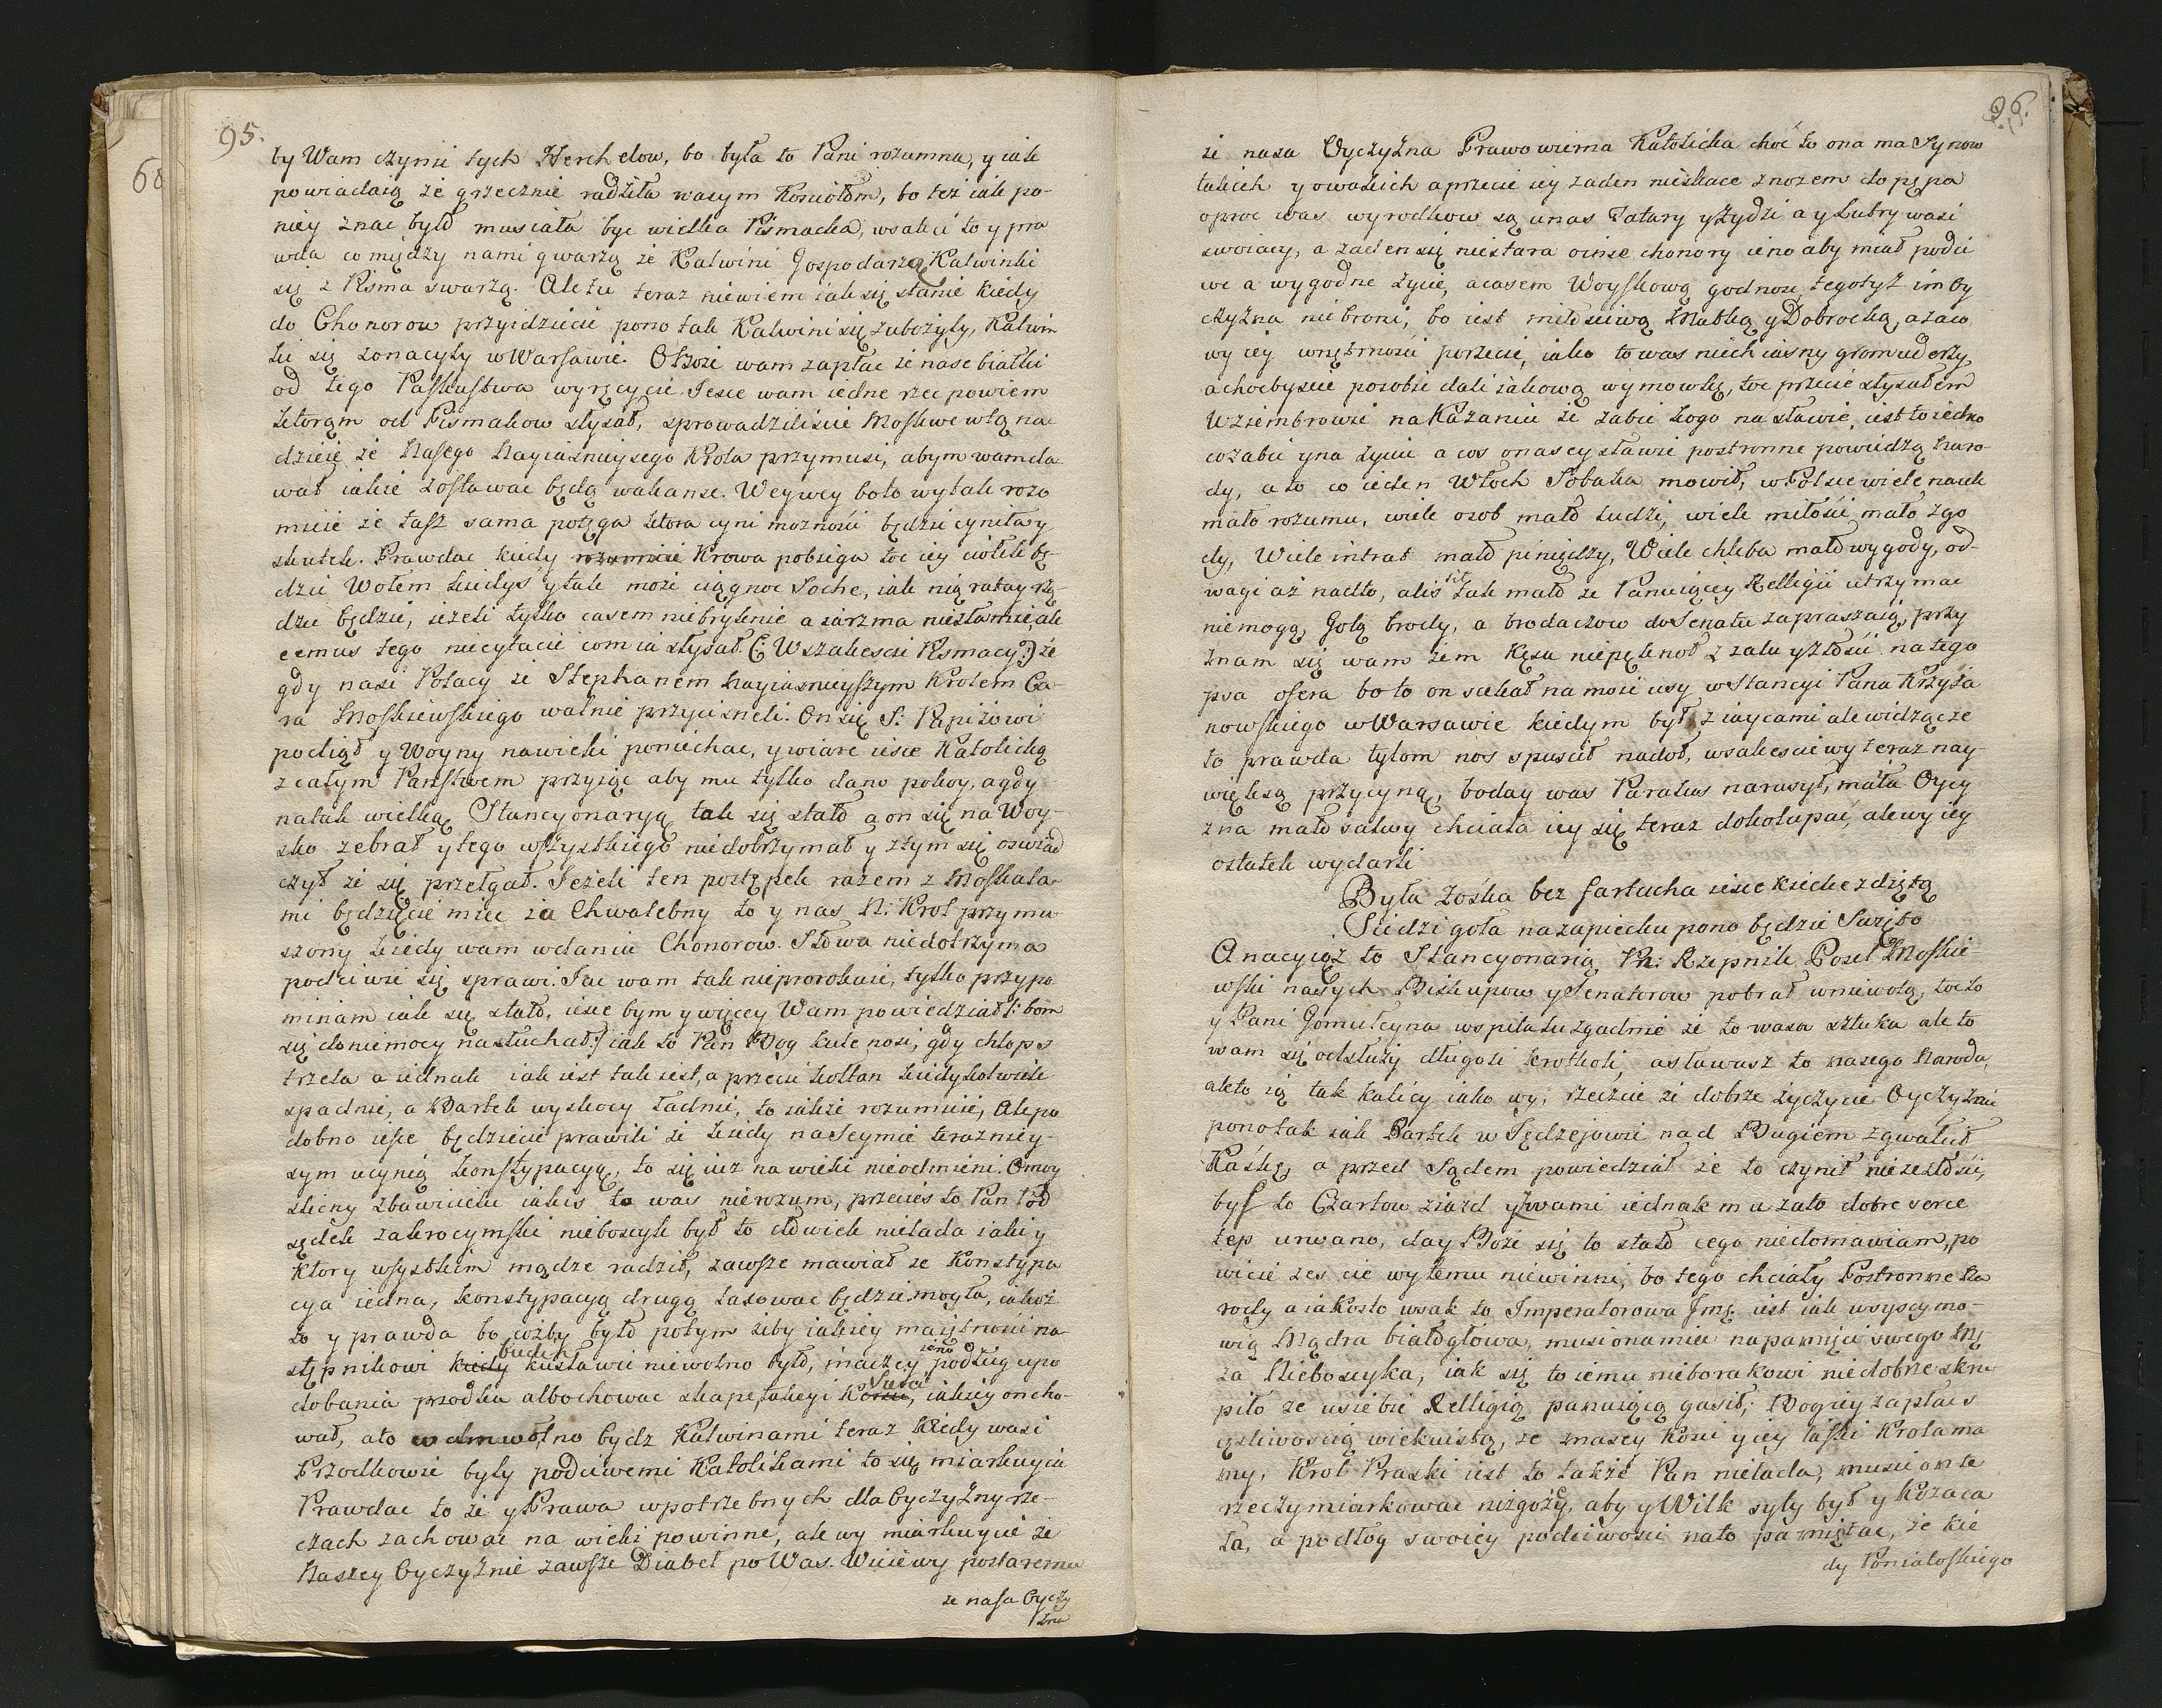 95.
by Wam czynie tych Herchelow, bo była to Pani rozumna, y iak
powiadaią że grzecznie radziła waszym Koniołom, bo też iak po-
niey znac było musiała byc wielka Pismacka, wsakci to y pra
wda co między nami gwarzą że Kalwini Gospodarzą Kalwinki
się z Pisma swarzą. Ale tu teraz niewiem iak się stanie kiedy
do Chonorow przyidziecie pono tak Kalwini się zubożyły, Kalwin
ki się zonacyły w Warsawie. O Boże wam zapłac że nase białki
od tego Paskustwa wyręcycie. Jesce wam iedne rzec powiem
ktorąm od Pismakow słysał, sprowadziliscie Moskwe wtą na-
dzieie że Naszego Nayiasnieysego Krola przymusi, aby m wam da-
wał iakie zostawac będą wakanse. Weywey boto wy tak rozo
miecie że tasz sama potęga ktora cyni moznosci będzie cyniła y
skutek. Prawdac kiedy rozumicie Krowa pobiega toc iey ciołek bę-
dzie Wołem kiedyś y tak może ciągnoc Sochę, iak nią rataу rzą-
dzic będzie, ieżeli tylko casem niebryknie a iarzma niezłamie, ale
cemus tego niecytacie com ia słysał. (: Wszakescie Pismacy:) że
gdy nasi Polacy ze Stephanem Nayiasnieyszym Krolem Ca-
ra Moskiewskiego walnie przycisneli. On się S: Papiżowi
podiął y Woyny nawieki poniechac, y wiarę iesce Katolicką
z całym Panstwem przyiąc aby mu tylko dano pokoy, a gdy
natak wielką Stancyonaryą tak się stało a on się na Woy-
sko zebrał y tego wszystkiego niedotrzymał y z tym się oswiad
czył że się przełgał. Jeżeli ten postępek razem z Moskala-
mi będziecie miec za Chwalebny to y nas N: Krol przymu
szony kiedy wam wdaniu Chonorow. Słowa niedotrzyma
podciwie się sprawi. Jac wam tak nieprorokuie, tylko przypo
minam iak się stało, iesce bym y więcey Wam powiedział /: bom
się do niemocy nasłuchał :/ iak to Pan Bog kule nosi, gdy chłop s
trzela a iednak iak iest tak iest, a przecie kołtan kiedykolwiek
spadnie, a Bartek wyskocy ładnie, to iakże rozumicie, Ale po
dobno iesce będziecie prawili że kiedy na Seymie terazniey-
sym ucynią konstypacyą, to się iuz na wieki nieodmieni. O moy
slicny zbawicielu iakis to was nierozum, przecies to Pan Pod
sędek zakrocymski nieboscyk był to cłowiek nielada iaki y
ktory wszystkim mądze radził, zawsze mawiał ze Konstypa
cya iedna, konstypacyą drugą kasowac będzie mogła, iakoż
to y prawda bo iużby było potym żeby iakiey maiętnosci na-
stępnikowi kiedy budek kustawic niewolno było, inaczey ieno podług upo
dobania przodka albochowac skape, takeyi Kozuc, Susce iakiey on cho-
wał, a to wolno bydz Kalwinami teraz kiedy wasi
Przodkowie byly podciwemi Katolikami to się miarkuycie
Prawdac to że y Prawa wpotrzebnych dla Oyczyzny rze-
czach zachowac na wieki powinne, ale wy miarkuycie że
Naszey Oyczyznie zawsze Diabeł po Was. Wiciewy postaremu
ze nasa Oyczy
zna
96.
że nasa Oyczyzna Prawowierna Katolicka choc to ona ma Synow
takich y owakich a przecie iey zaden nieskace z nozem do pępa
oproc was wyrodkow są u nas Tatary y Żydzi a y Lutry wasi
swoiacy, a zaden się niestara o inse chonory ieno aby miał podci
we a wygodne życie, a casem Woyskową godnosc tegotyż im Oy
czyzna niebroni, bo iest miłosciwą Matką y Dobrocką, a zaco
wy iey wnętrznosci porzecie, iako to was niech iasny gromuderzy
a chocbyscie posobie dali iakową wymowkę, toc przecie słysałem
w Ziembrowie na Kazaniu że zabic kogo na sławie, iest to iedno
co zabic y na życiu a cos onascystawie postronne powiedzą Naro-
dy, a to co ieden Włoch Sobaka mowił, w Polsce wiele nauk
mało rozumu, wiele osob mało ludzi, wiele miłości mało zgo
dy, Wiele intrat mało pieniędzy, Wiele chleba mało wygody, od-
wagi aż nadto, alis sił tak mało że Panuiącey Relligii utrzymac
niemogą, Golą brody, a brodaczow do Senatu zapraszaią, przy
znam się wam żem kęsu niepęknoł z zalu y złości na tego
psa osera bo to on scekał na moie usy w Stancyi Pana Krzyża
nowskiego w Warsawie kiedym był z iaycami ale widzącze
to prawda tylom nos spuscił nadoł, wsakescie wy teraz nay-
więksą przycyną, boday was Paralus narusył, miała Oycy
zna mało salwy chciała iey się teraz dokołupać, ale wy iey
ostatek wydarli
Była Zośka bez fartucha iesce kieckę zdiętą
Siedzi goła nazapiecku pono będzie Święto
A nacyiąż to Stancyonarią Pn: Rzepnik Posel Moskie-
wski nasych Biskupow y Senatorow pobrał wniewolą, toc to
y Pani Gomulcyna wspitalu zgadnie że to wasa sztuka ale to
wam się odsłuży długoli krotkoli, a sławasz to nasego Narodu,
ale to ią tak kalicy iako wy, rzeczcie że dobrze życzycie Oyczyznie
pono tak iak Bartek w Sędzejowie nad Bugiem zgwałcił
Kaśkę, a przed Sądem powiedział że to czynił nie ze złości,
był to Czartow ziazd y z wami iednak mu zato dobre serce
łep urwano, day Boże się to stało cego niedomawiam, po
wicie zes cie wy temu niewinni, bo tego chciały Postronne Na
rody a iakosto wsak to Imperatorowa Jmę. iest iak wszyscy mo-
wią Mądra białogłowa, musi ona mieć napamięci swego Mę
ża Nieboscyka, iak się to iemu nieborakowi niedobrze skru
piło że usiebie Relligią panuiącą gasił; Bog iey zapłac s
cęsliwoscią wiekuistą, ze znasey Kosci y iey łaski Krola ma
my, Krol Praski iest to także Pan nielada, musi on te
rzeczy miarkowac nizgoży, aby y Wilk syty był y Kozaca
ła, a podłog swoiey podciwosci nato pamiętac, że kie
dy Poniatoskiego